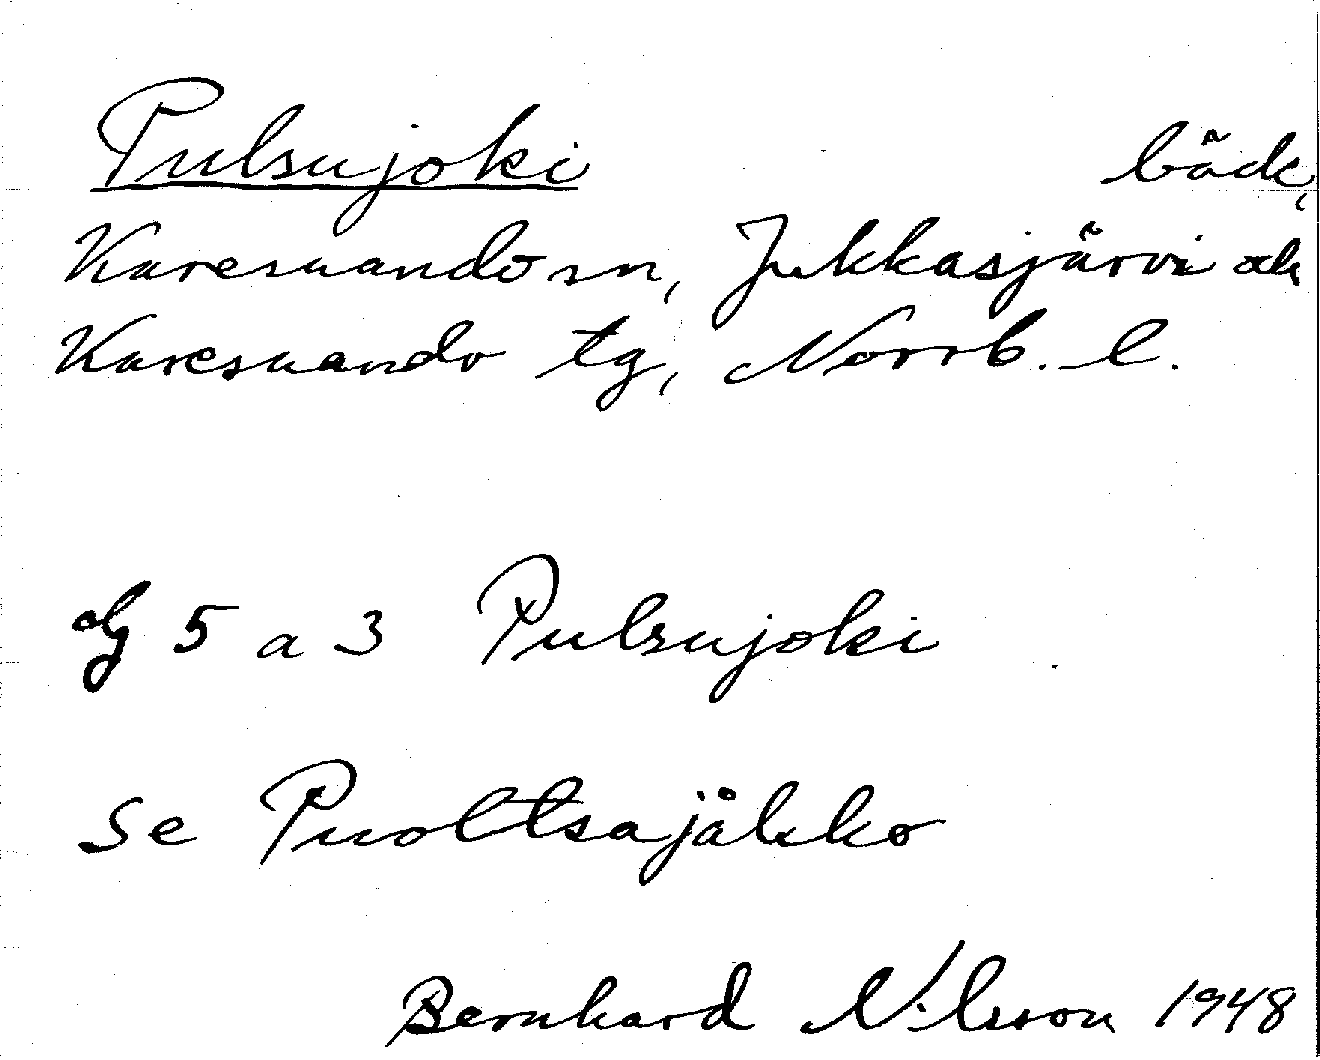 Pulsujoki bäck,
Karesuando sn, Jukkasjärvi och
Karesuando tg, Norrb. l.
5 a 3 Pulsujoki
se Puoltsajåkko
Bernhard Nilsson 1948